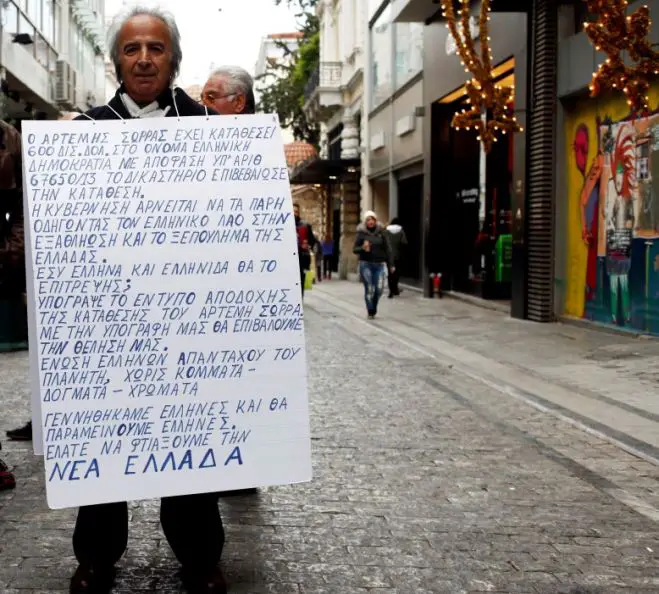 Ο ΑΡΤΕΜΗΣ ΣΩΡΡΑΣ ΕΧΕΙ ΚΑΤΑΘΕΣΕΙ
600 ΔΙΣ, ΔΟΛ. ΣΤΟ ΟΝΟΜΑ ΕΛΛΗΝΙΚΗ
ΔΗΜΟΚΡΑΤΙΑ ΜΕ ΑΠΟΦΑΣΗ ΥΠ' ΑΡΙΘ
67650/13 ΤΟ ΔΙΚΑΣΤΗΡΙΟ ΕΠΙΒΕΒΑΙΩΣΕ
ΤΗΝ ΚΑΤΑΘΕΣΗ.
Η ΚΥΒΕΡΝΗΣΗ ΑΡΝΕΙΤΑΙ ΝΑ ΤΑ ΠΑΡΗ
ΟΔΗΓΩΝΤΑΣ ΤΟΝ ΕΛΛΗΝΙΚΟ ΛΑΟ ΣΤΗΝ
ΕΞΑΘΛΗΩΣΗ ΚΑΙ ΤΟ ΞΕΠΟΥΛΗΜΑ ΤΗΣ
ΕΛΛΑΔΑΣ.
ΕΣΥ ΕΛΛΗΝΑ ΚΑΙ ΕΛΛΗΝΙΔΑ ΘΑ ΤΟ
ΕΠΙΤΡΕΨΗΣ;
ΥΠΟΓΡΑΨΕ ΤΟ ΕΝΤΥΠΟ ΑΠΟΔΟΧΗΣ
ΤΗΣ ΚΑΤΑΘΕΣΗΣ ΤΟΥ ΑΡΤΕΜΗ ΣΩΡΡΑ.
ΜΕ ΤΗΝ ΥΠΟΓΡΑΦΗ ΜΑΣ ΘΑ ΕΠΙΒΑΛΟΥΜΕ
ΤΗΝ ΘΕΛΗΣΗ ΜΑΣ.
ΕΝΩΣΗ ΕΛΛΗΝΩΝ ΑΠΑΝΤΑΧΟΥ ΤΟΥ
ΠΛΑΝΗΤΗ, ΧΩΡΙΣ ΚΟΜΜΑΤΑ -
ΔΟΓΜΑΤΑ - ΧΡΩΜΑΤΑ
ΓΕΝΝΗΘΗΚΑΜΕ ΕΛΛΗΝΕΣ ΚΑΙ ΘΑ
ΠΑΡΑΜΕΙΝΟΥΜΕ ΕΛΛΗΝΕΣ.
ΕΛΑΤΕ ΝΑ ΦΤΙΑΞΟΥΜΕ ΤΗΝ
ΝΕΑ ΕΛΛΑΔΑ